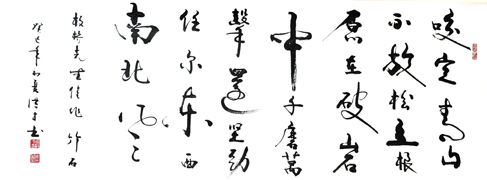 咬定青山
不放松立根
原在破岩
中千磨萬
擊還坚劲
任尔东西
南北风
板桥先生佳作竹石
癸巳年初夏 书